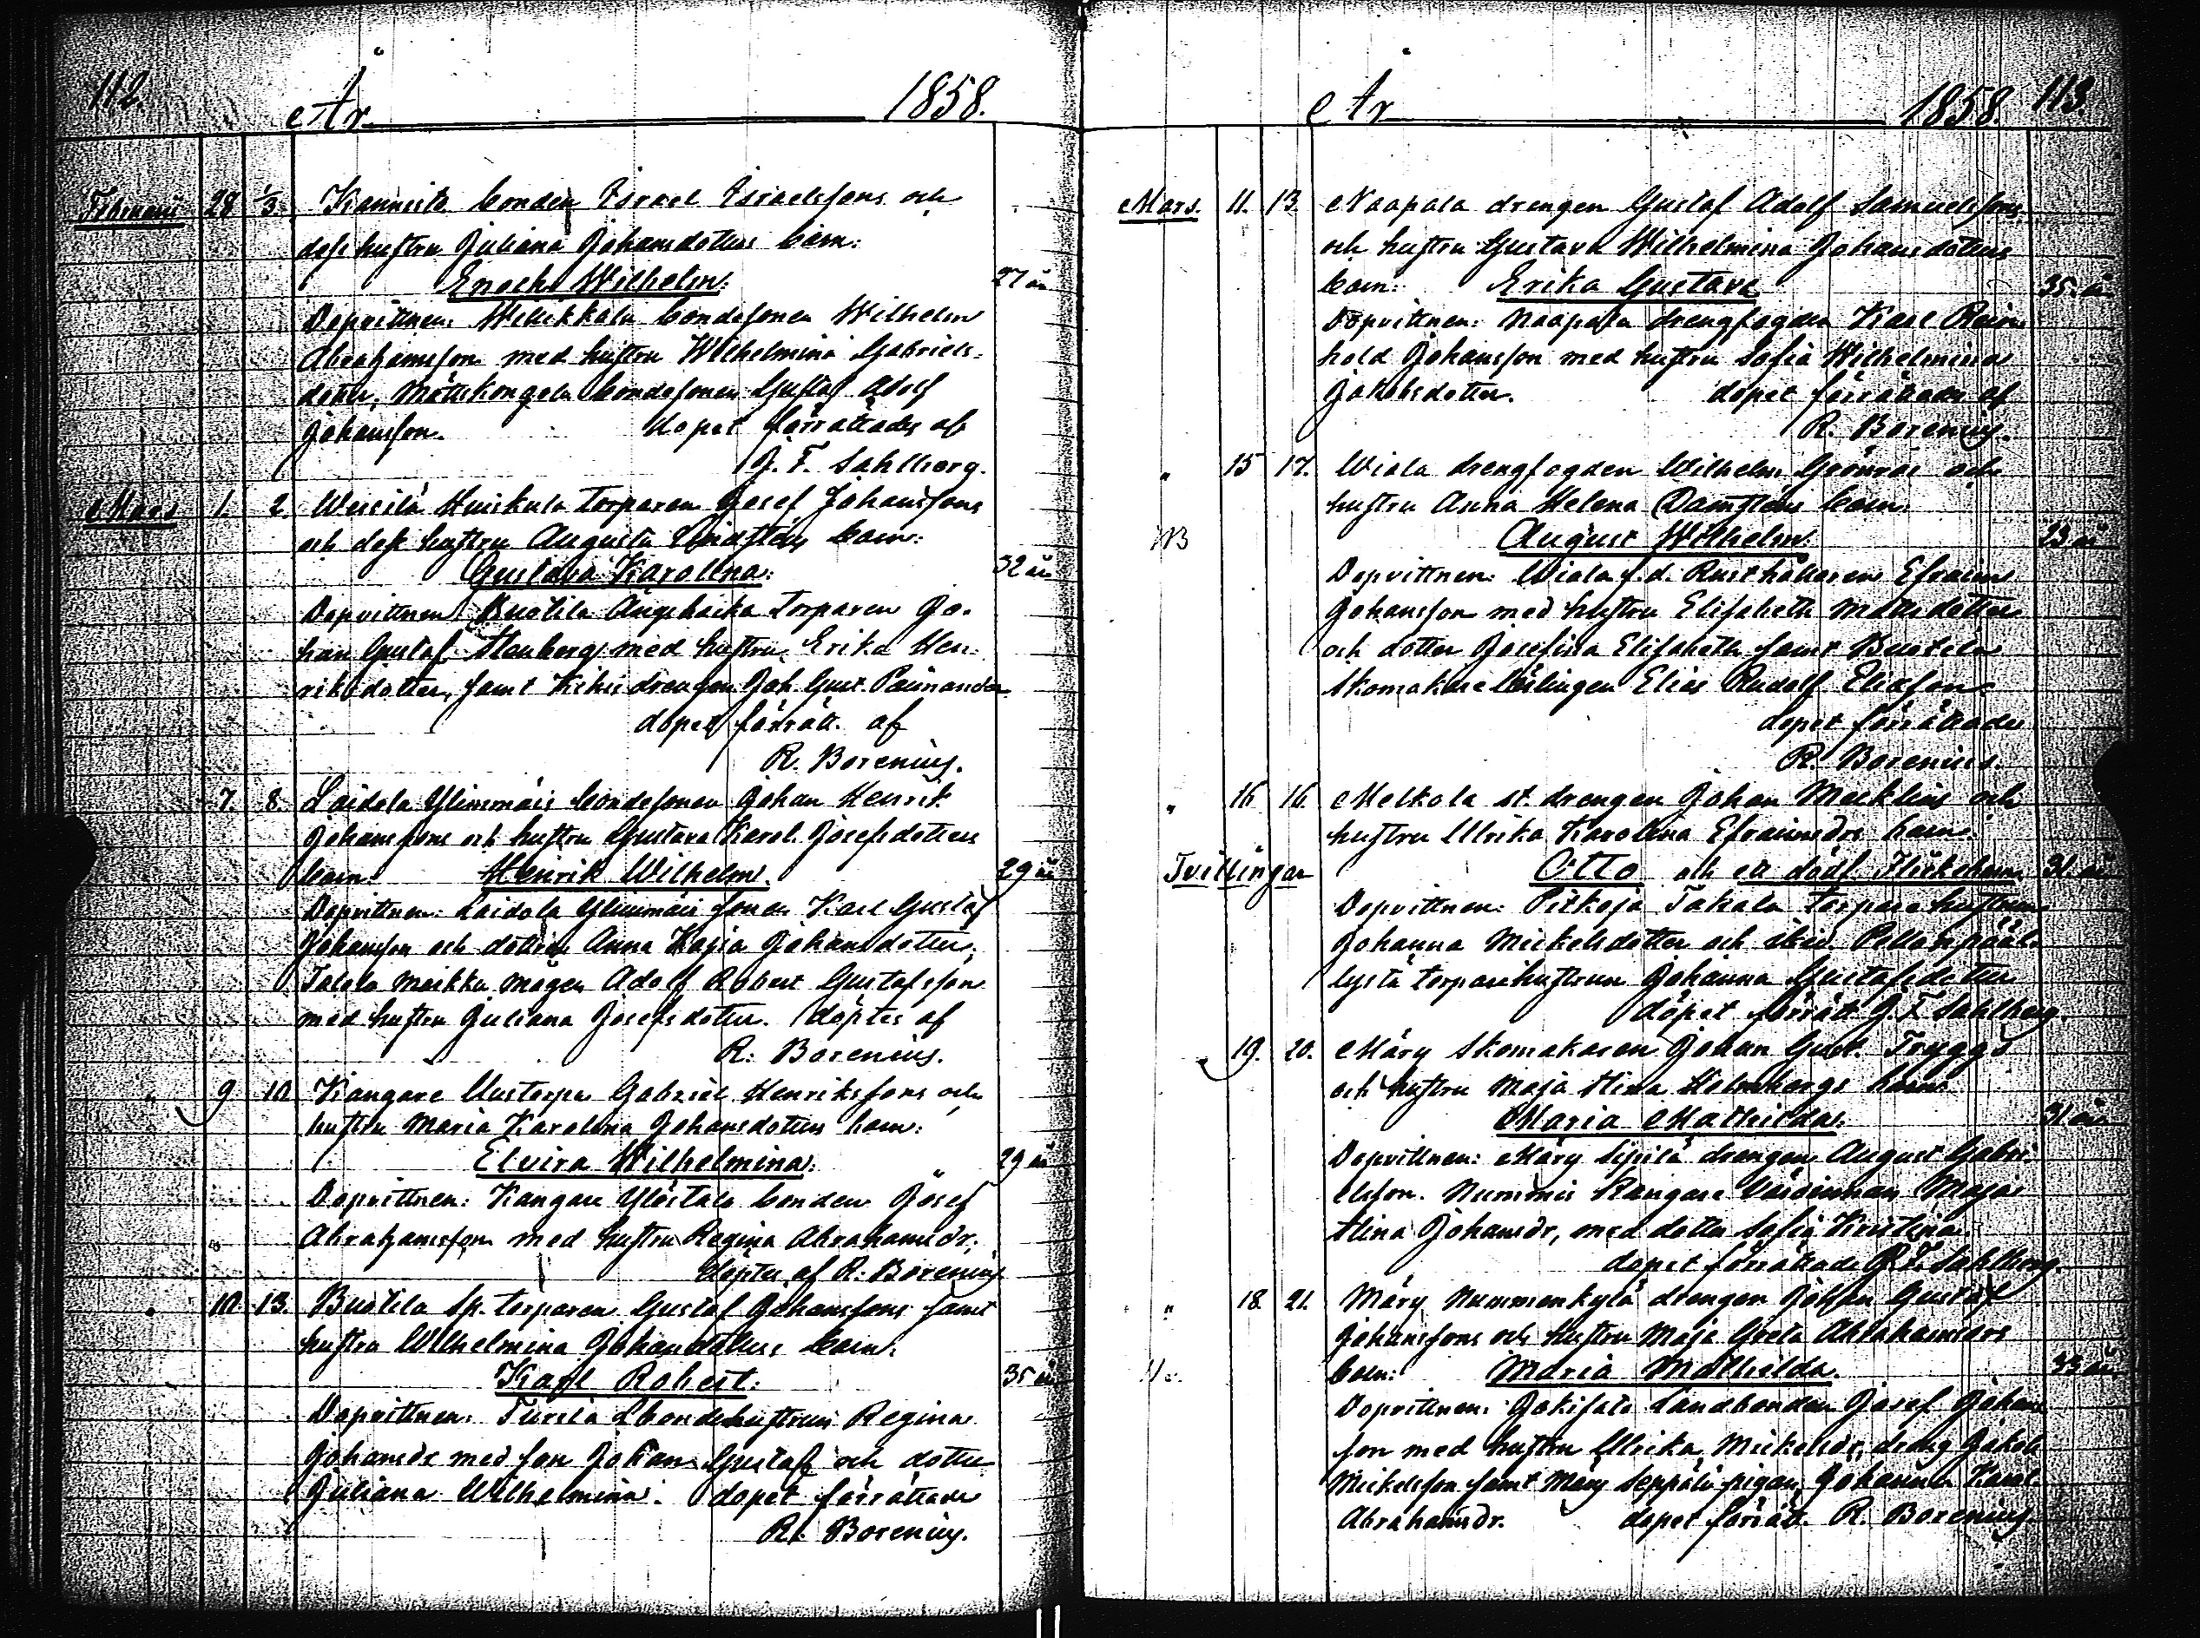 112. År 1858.
Februarii 28 1/3 Kanneisto bonden Israel Israelssons och
dess hustru Juliana Johansdotters barn:
Enoch Wilhelm: 27 år
Dopvittnen: Wilikkala bondesonen Wilhelm
Abrahamsson med hustru Wilhelmina Gabriels-
dotter, bondesonen Gustaf Adolf
Johansson. dopet förrättades af
J. F. Sahlberg.
Mars 1. 2. torparen Josef Johanssons
och dess hustru Augusta Lindsténs barn:
Gustava Karolina: 32 år
Dopvittnen: Buotila torparen Jo-
han Gustaf Stenberg med hustru Erika Hen-
riksdotter, samt drengen Joh. Gust.
dopet förrätt. af
R. Borenius.
7. 8. Laidola Ylimmäis bondesonen Johan Henrik
Johanssons och hustru Gustava Karol. Josefsdotters
barn: Henrik Wilhelm. 29 år
Dopvittnen: Laidola Ylimmäis sonen Karl Gustaf
Johansson och dottren Anna Kajsa Johansdotter,
Talola mågen Adolf Robert Gustafsson
med hustru Juliana Josefsdotter. döptes af
R. Borenius.
" 9 10 Kangare Gabriel Henrikssons och
hustru Maria Karolina Johansdotters barn:
Elvira Wilhelmina: 29 år
Dopvittnen: Kangare Ylöstalo bonden Josef
Abrahamsson med hustru Regina Abrahamsdr.
döptes af R. Borenius
" 10 13. Buotila Sp. torparen Gustaf Johanssons samt
hustru Wilhelmina Johansdotters barn:
Karl Robert: 35 år
Dopvittnen: Lbondehustrun Regina
Johansdr med son Johan Gustaf och dotter
Juliana Wilhelmina. dopet förrättade
R. Borenius.
År 1858. 113.
Mars. 11. 13. Naapala drengen Gustaf Adolf Samuelssons
och hustru Gustava Wilhelmina Johansdotters
barn: Erika Gustava 35 år
Dopvittnen: Naapala drengfogden Karl Rein-
hold Johansson med hustru Sofia Wilhelmina
Jakobsdotter. dopet förrättades af
R. Borenius.
" 15 17. Wiala drengfogden Wilhelm Grönroos och
hustru Anna Helena Damsténs barn:
NB August Wilhelm 23 år
Dopvittnen: Wiala f.d. Rusthållaren Efraim
Johansson med hustru Elisabeth Mattsdotter
och dotter Josefina Elisabeth samt Buotila
Skomakare lärlingen Elias Rudolf Eliasson
dopet förrättade
R. Borenius.
" 16 16. Melkola st. drengen Johan Mecklins och
hustru Ulrika Karolina Efraimsdrs barn:
Tvillingar Otto och ett dödf. Flickebarn 31 år
Dopvittnen: Pitkoja Takala torparehustrun
Johanna Mickelsdotter och ibid.
torparehustrun Johanna Gustafsdotter
dopet förrätt. J. F. Sahlberg.
" 19. 20. Märy Skomakaren Johan Gust. Tryggs
och hustru Maja Stina Holmbergs barn
Maria Mathilda: 31 år
Dopvittnen: Märy Sipilä drengen August Gabri-
elsson. Nummis Kangare värdinnan Maja
Stina Johansdr, med dotter Sofia Kristina
dopet förrättade J. F. Sahlberg.
" 18. 21. Märy Nummenkylä drengen Johan Gustaf
Johanssons och hustru Maja Greta Abrahamsdrs
barn: Maria Mathilda. 33 år
Dopvittnen: Jokisalo Landbonden Josef Johans-
son med hustru Ulrika Mickelsdr, dreng Jakob
Mickelsson samt Märy Seppälä pigan Johanna Karol.
Abrahamsdr. dopet förrätt. R. Borenius